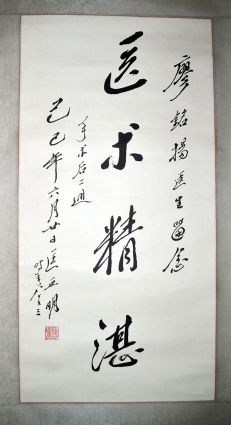 廖铭扬医生留念
医术精湛
手术后二週
己巳年六月廿日匡亚明
时年八十三